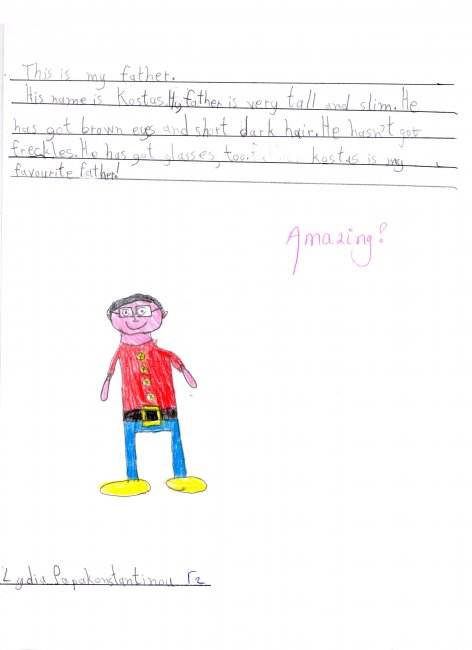 This is my father.
His name is Kostas. My father is very tall and slim. He
has got brown eyes and short dark hair. He hasn't got
freckles. He has got glasses, too. Kostas is my
favourite father!
Amazing!
Lydia Papakonstantinou Γ2